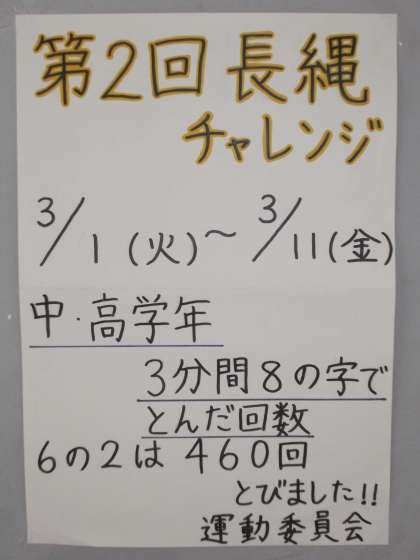 第2回長縄
チャレンジ
3/1(火)～3/11(金)
中・高学年
3分間8の字で
とんだ回数
6の2は460回
とびました!!
運動委員会